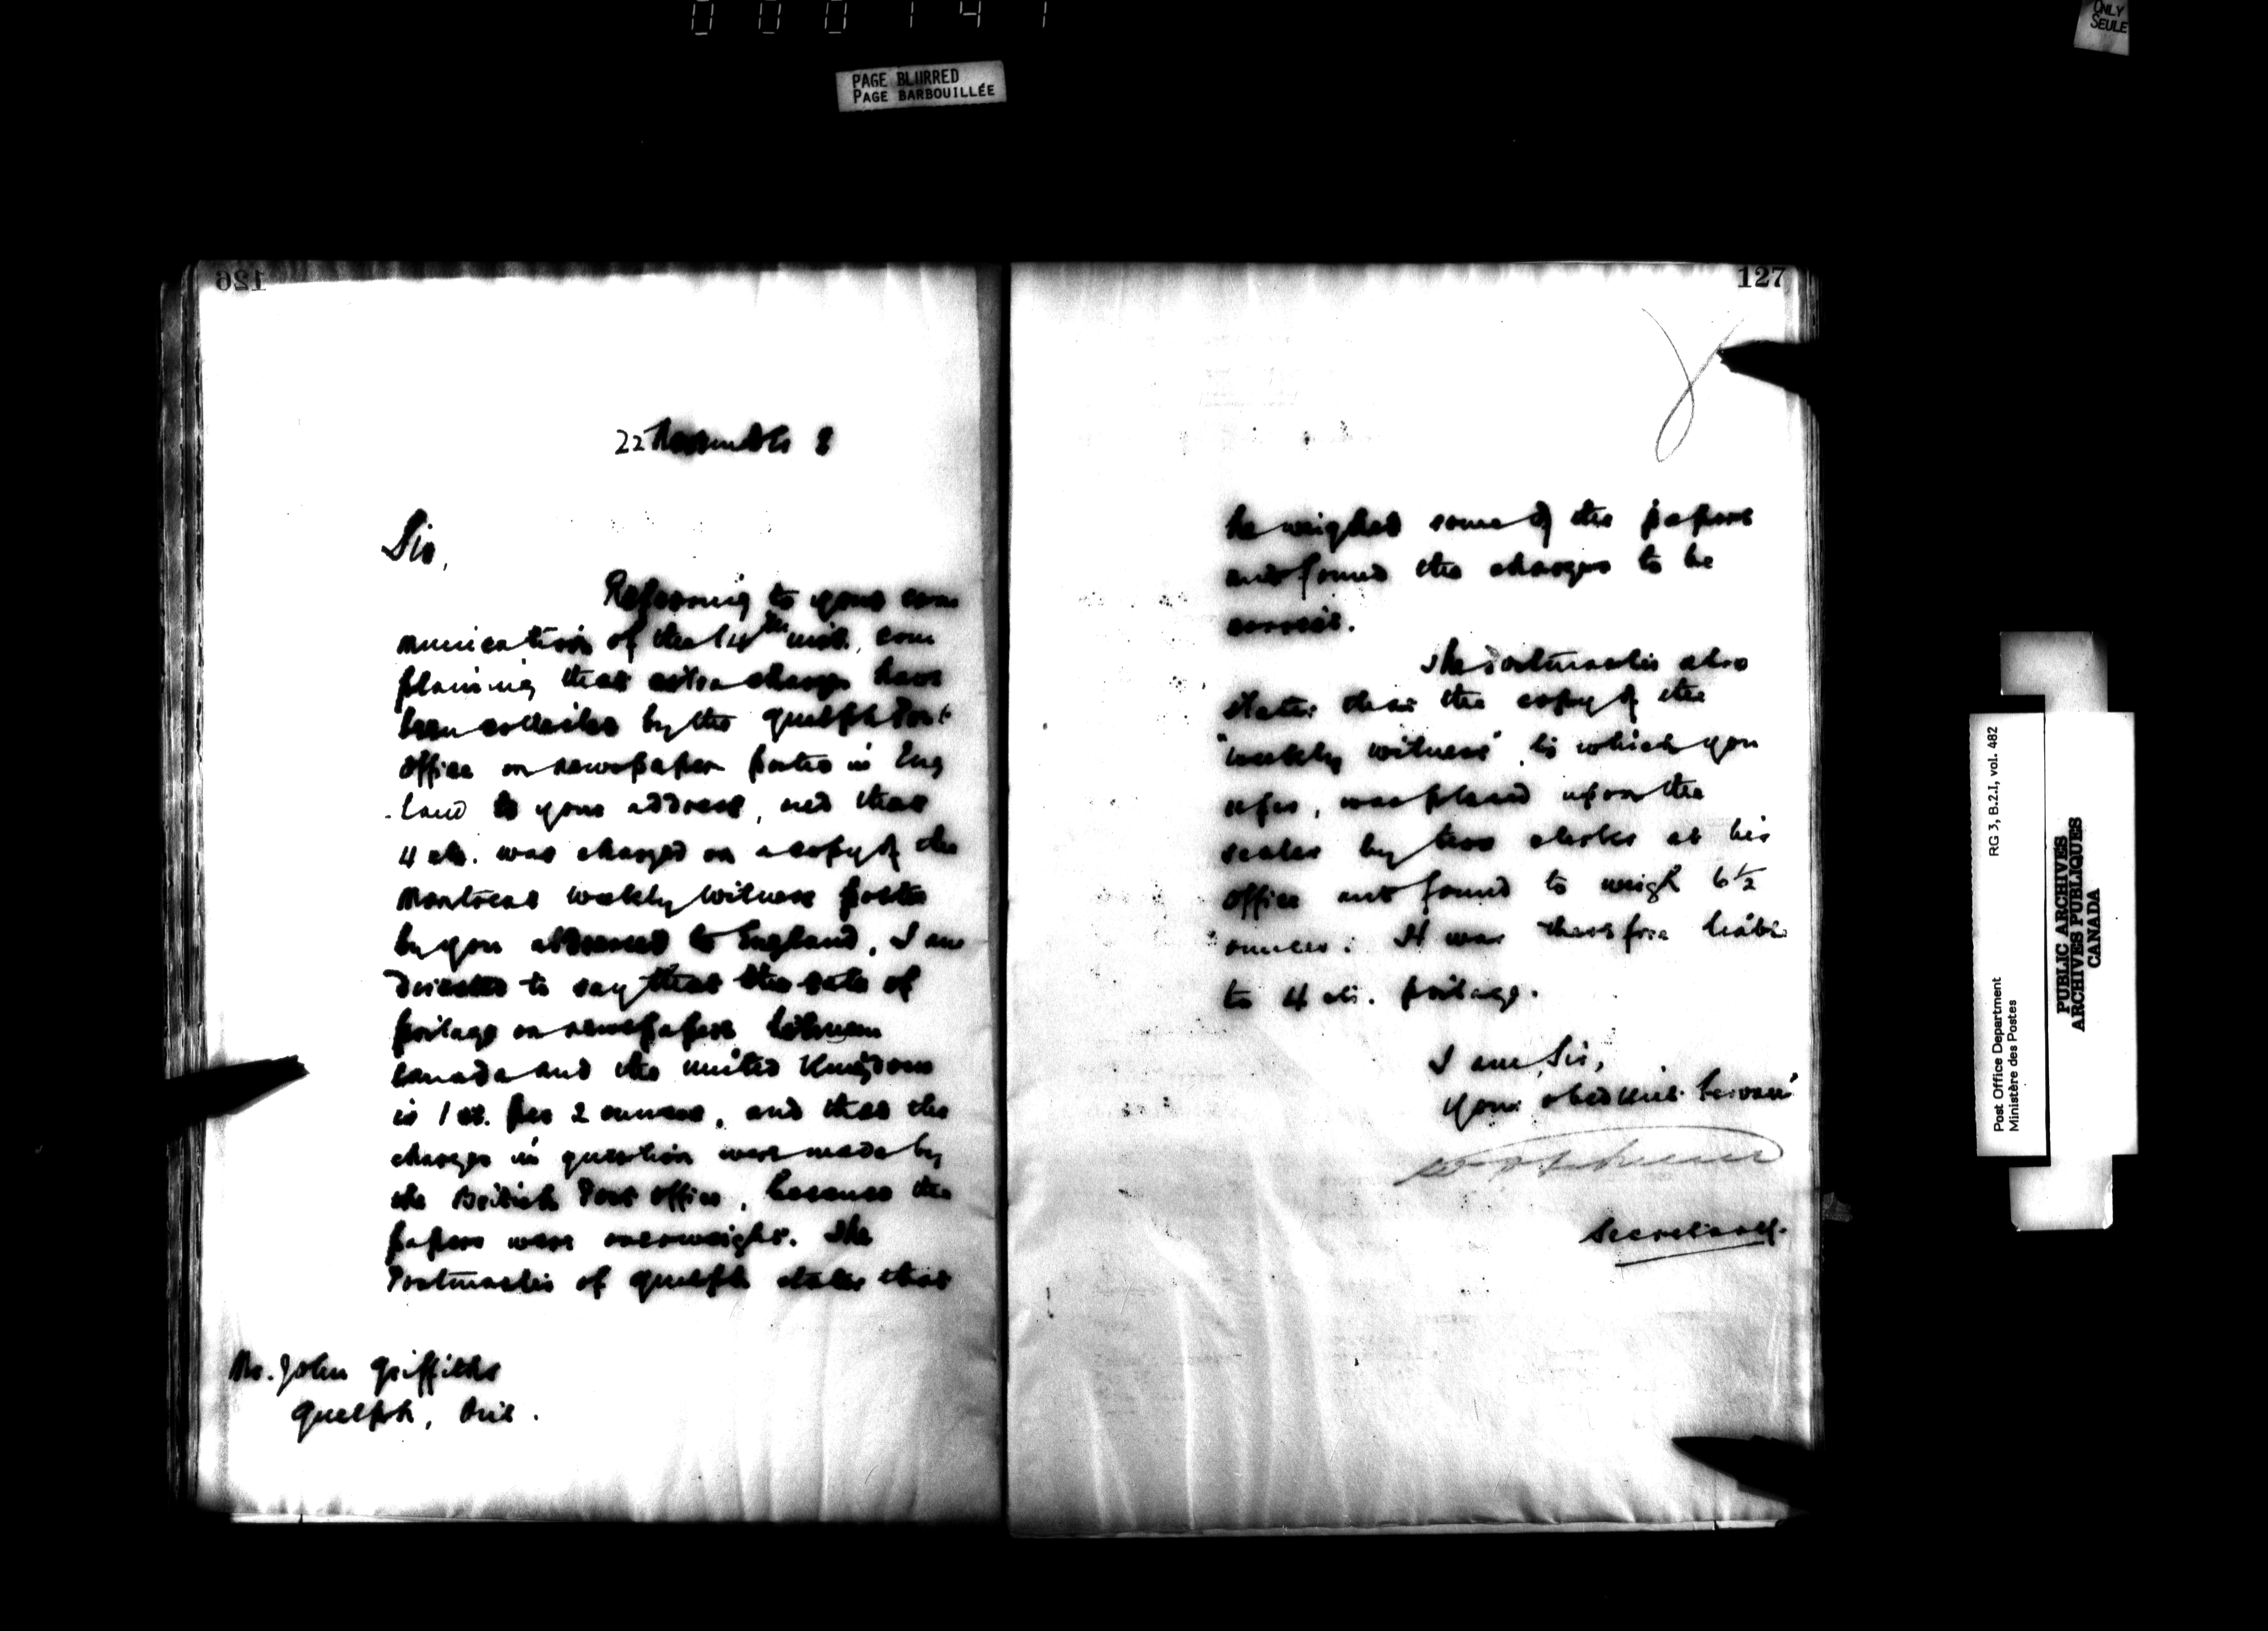 000141
ONLY
SEULE
PAGE BLURRED
PAGE BARBOUILLÉE
126
22 November 8
Sir,
Referring to your com
munication of the 14th inst., com
plaining that extra charges have
been collected by the Guelph Post
Office on newspapers posted in Eng
-land to your address, and that
4 cts. was charged on a copy of the
Montreal Weekly Witness posted
by you addressed to England, I am
directed to say that the rate of
postage on newspapers between
Canada and the United Kingdom
is 1 ct. per 2 ounces, and that the
charges in question were made by
the British Post Office, because the
papers were overweight. The
Postmaster of Guelph states that
Mr. John Griffiths
Guelph, Ont.
127
he weighed some of the papers
and found the charges to be
correct.
The Postmaster also
states that the copy of the
"Weekly Witness", to which you
refer, was placed upon the
scales by two clerks at his
office and found to weigh 6½
ounces. It was therefore liable
to 4 cts. postage.
I am, Sir,
Your obedient Servant
Secretary.
Post Office Department
Ministère des Postes
RG 3, B.2.I, vol. 482
PUBLIC ARCHIVES
ARCHIVES PUBLIQUES
CANADA